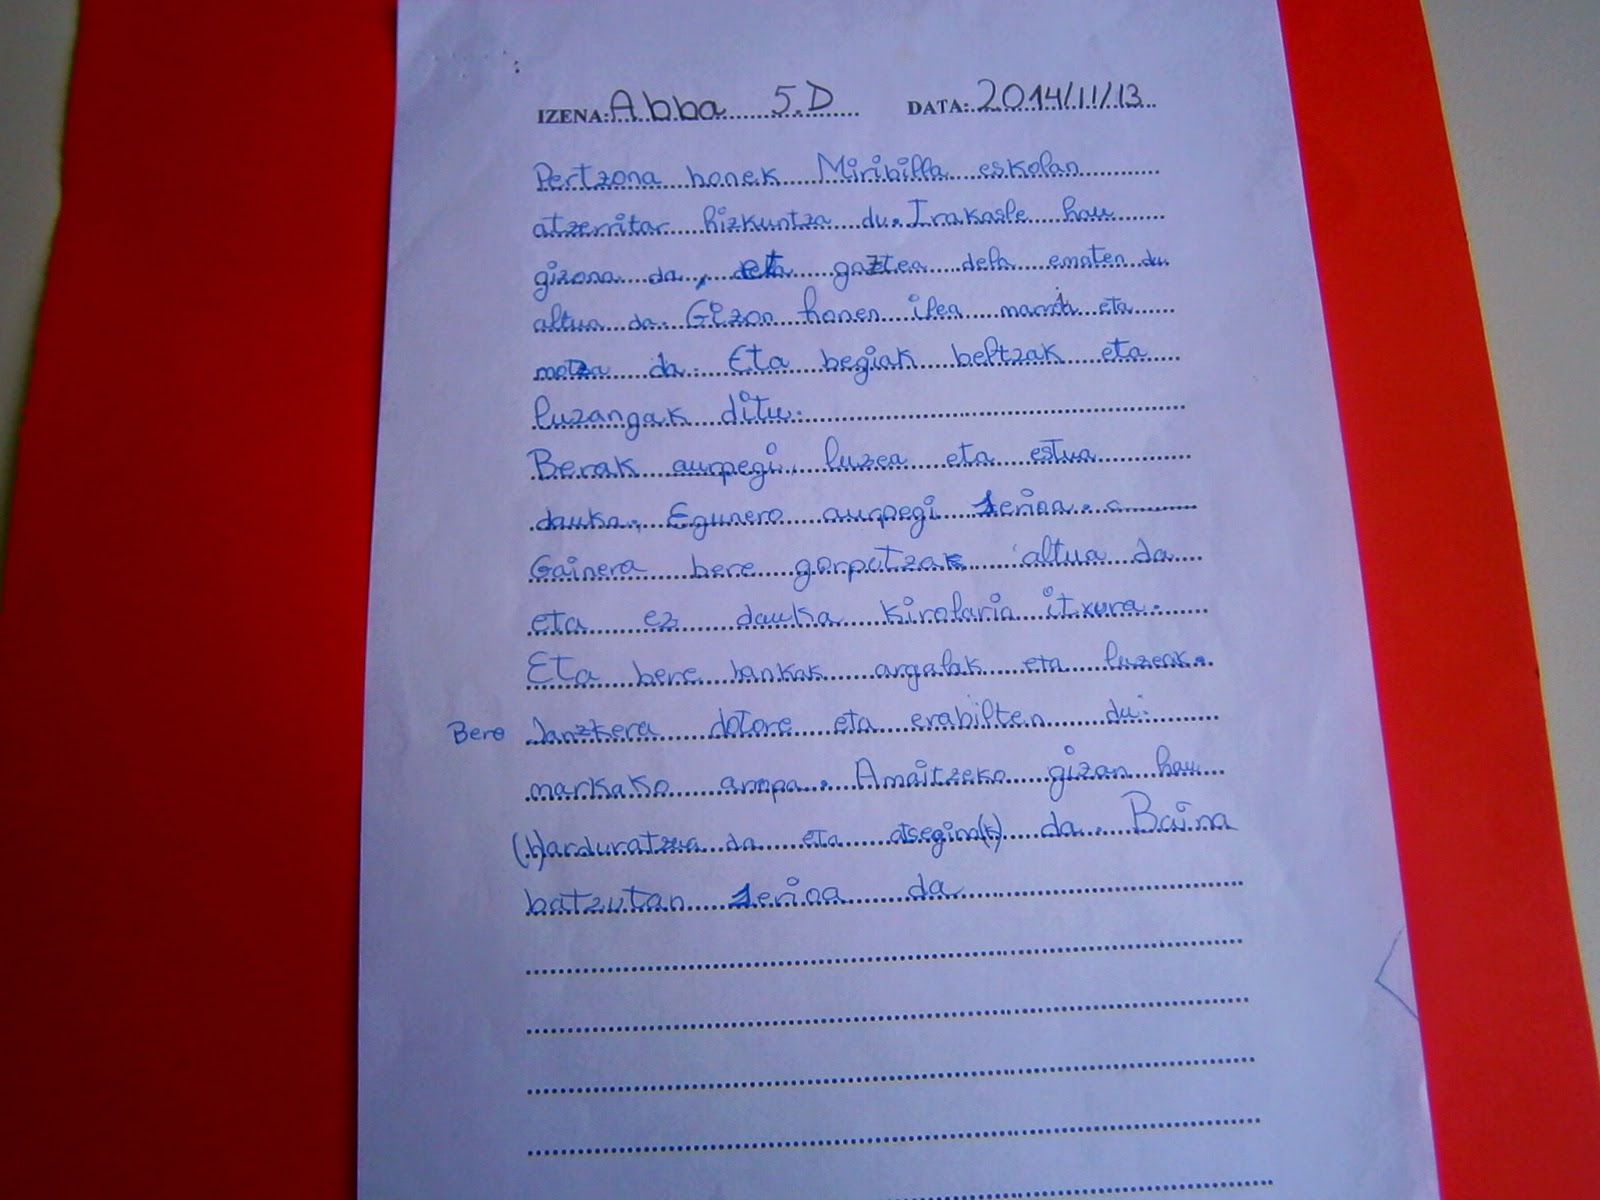 IZENA: Abba 5.D DATA: 2014/11/13
Pertzona honek Miribilla eskolan
atzerritar hizkuntza du. Irakasle hau
gizona da, eta gaztea dela ematen du
altua da. Gizon honen ilea marroi eta
motza da. Eta begiak beltzak eta
luzangak ditu.
Berak aurpegi luzea eta estua
dauka. Egunero aurpegi serioa.
Gainera bere gorputzak altua da
eta ez dauka kirolaria itxura.
Eta bere hankak argalak eta luzeak.
Bere Janzkera dotore eta erabilten du:
markako arropa. Amaitzeko gizan hau
(h)arduratzua da eta atsegina(k) da. Baina
batzutan serioa da